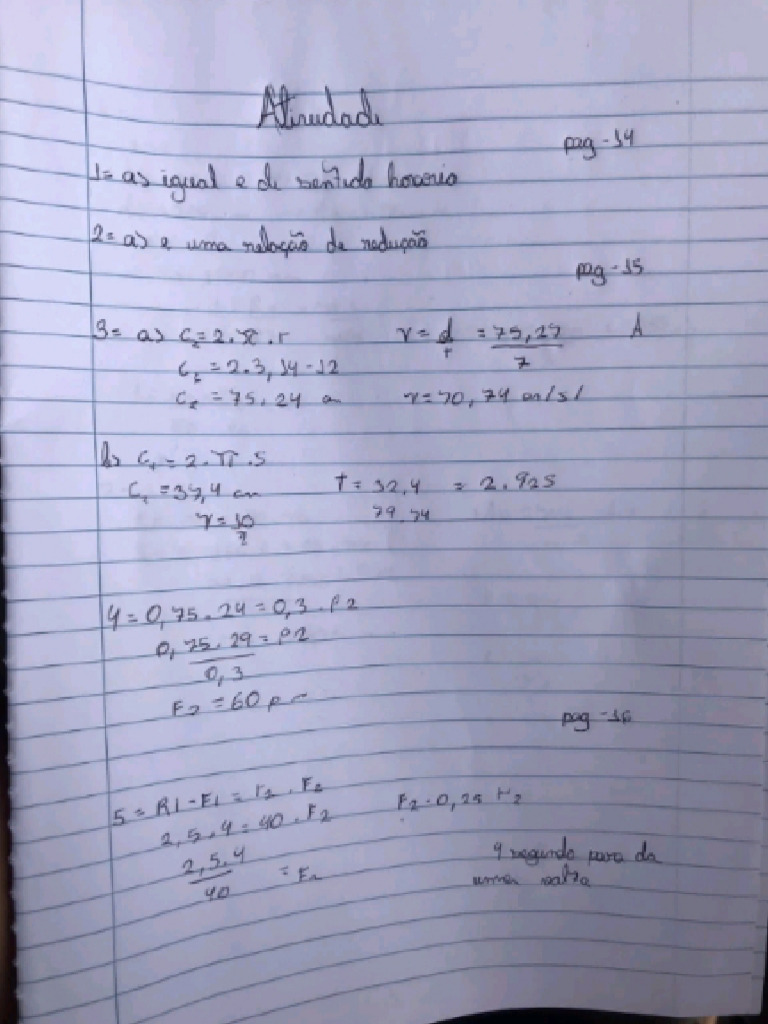 Atividade
pag - 14
1 = a) igual e de sentido horario
2 = a) e uma relação de redução
pag - 15
3 = a) C₂ = 2 . π . r    v = d/t = 75,27/7    A
C₂ = 2 . 3,14 - 12
C₂ = 75.24 cm    v = 70,74 cm/s/
b) C₁ = 2 . π . 5
C₁ = 37,4 cm    T = 32,4 = 2.925
79.74
v = 10/?
4 = 0,75 . 24 = 0,3 . F2
0,75 . 29 = F2
0,3
F2 = 60 r
pag - 16
5 = R1 - F1 = r₂ . F₂    F₂ - 0,25 H₂
2,5 . 4 = 40 . F₂
2,5 . 4 = F₂    4 segundo para da
40    uma volta